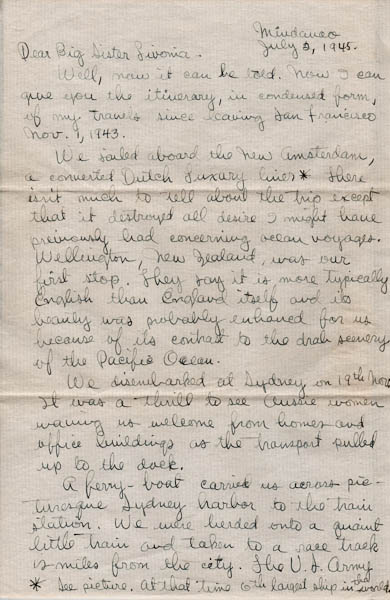 Mindanao
July 3, 1945.
Dear Big Sister Livonia.
Well, now it can be told. Now I can
give you the itinerary, in condensed form,
of my travels since leaving San Francisco
Nov. 1, 1943.
We sailed aboard the New Amsterdam,
a converted Dutch luxury liner* There
isn't much to tell about the trip except
that it destroyed all desire I might have
previously had concerning ocean voyages.
Wellington, New Zealand, was our
first stop. They say it is more typically
English than England itself and its
beauty was probably enhanced for us
because of its contrast to the drab scenery
of the Pacific Ocean.
We disembarked at Sydney on 19th Nov.
It was a thrill to see Aussie women
waving us welcome from homes and
office buildings as the transport pulled
up to the dock.
A ferry-boat carried us across pic-
turesque Sydney harbor to the train
station. We were herded onto a quaint
little train and taken to a race track
miles from the city. The U.S. Army
* See picture. At that time 6th largest ship in the world